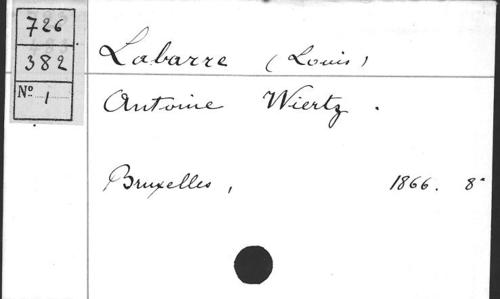 726
382
Nº 1
Labarre (Louis)
Antoine Wiertz.
Bruxelles, 1866. 8°